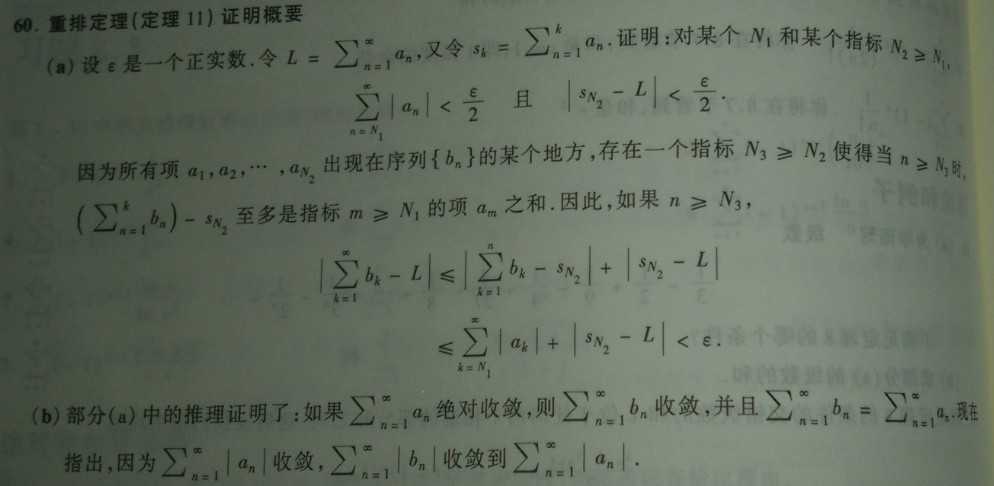 60. 重排定理(定理 11) 证明概要
(a) 设 ε 是一个正实数. 令 L = ∑_{n=1}^{∞} a_n, 又令 s_k = ∑_{n=1}^{k} a_n. 证明: 对某个 N_1 和某个指标 N_2 ≥ N_1,
∑_{n=N_1}^{∞} |a_n| < ε/2 且 |s_{N_2} - L| < ε/2.
因为所有项 a_1, a_2, ⋯, a_{N_2} 出现在序列{b_n}的某个地方, 存在一个指标 N_3 ≥ N_2 使得当 n ≥ N_3 时,
(∑_{n=1}^{k} b_n) - s_{N_2} 至多是指标 m ≥ N_1 的项 a_m 之和. 因此, 如果 n ≥ N_3,
|∑_{k=1}^{∞} b_k - L| ≤ |∑_{k=1}^{n} b_k - s_{N_2}| + |s_{N_2} - L|
≤ ∑_{k=N_1}^{∞} |a_k| + |s_{N_2} - L| < ε.
(b) 部分(a) 中的推理证明了: 如果 ∑_{n=1}^{∞} a_n 绝对收敛, 则 ∑_{n=1}^{∞} b_n 收敛, 并且 ∑_{n=1}^{∞} b_n = ∑_{n=1}^{∞} a_n. 现在
指出, 因为 ∑_{n=1}^{∞} |a_n| 收敛, ∑_{n=1}^{∞} |b_n| 收敛到 ∑_{n=1}^{∞} |a_n|.